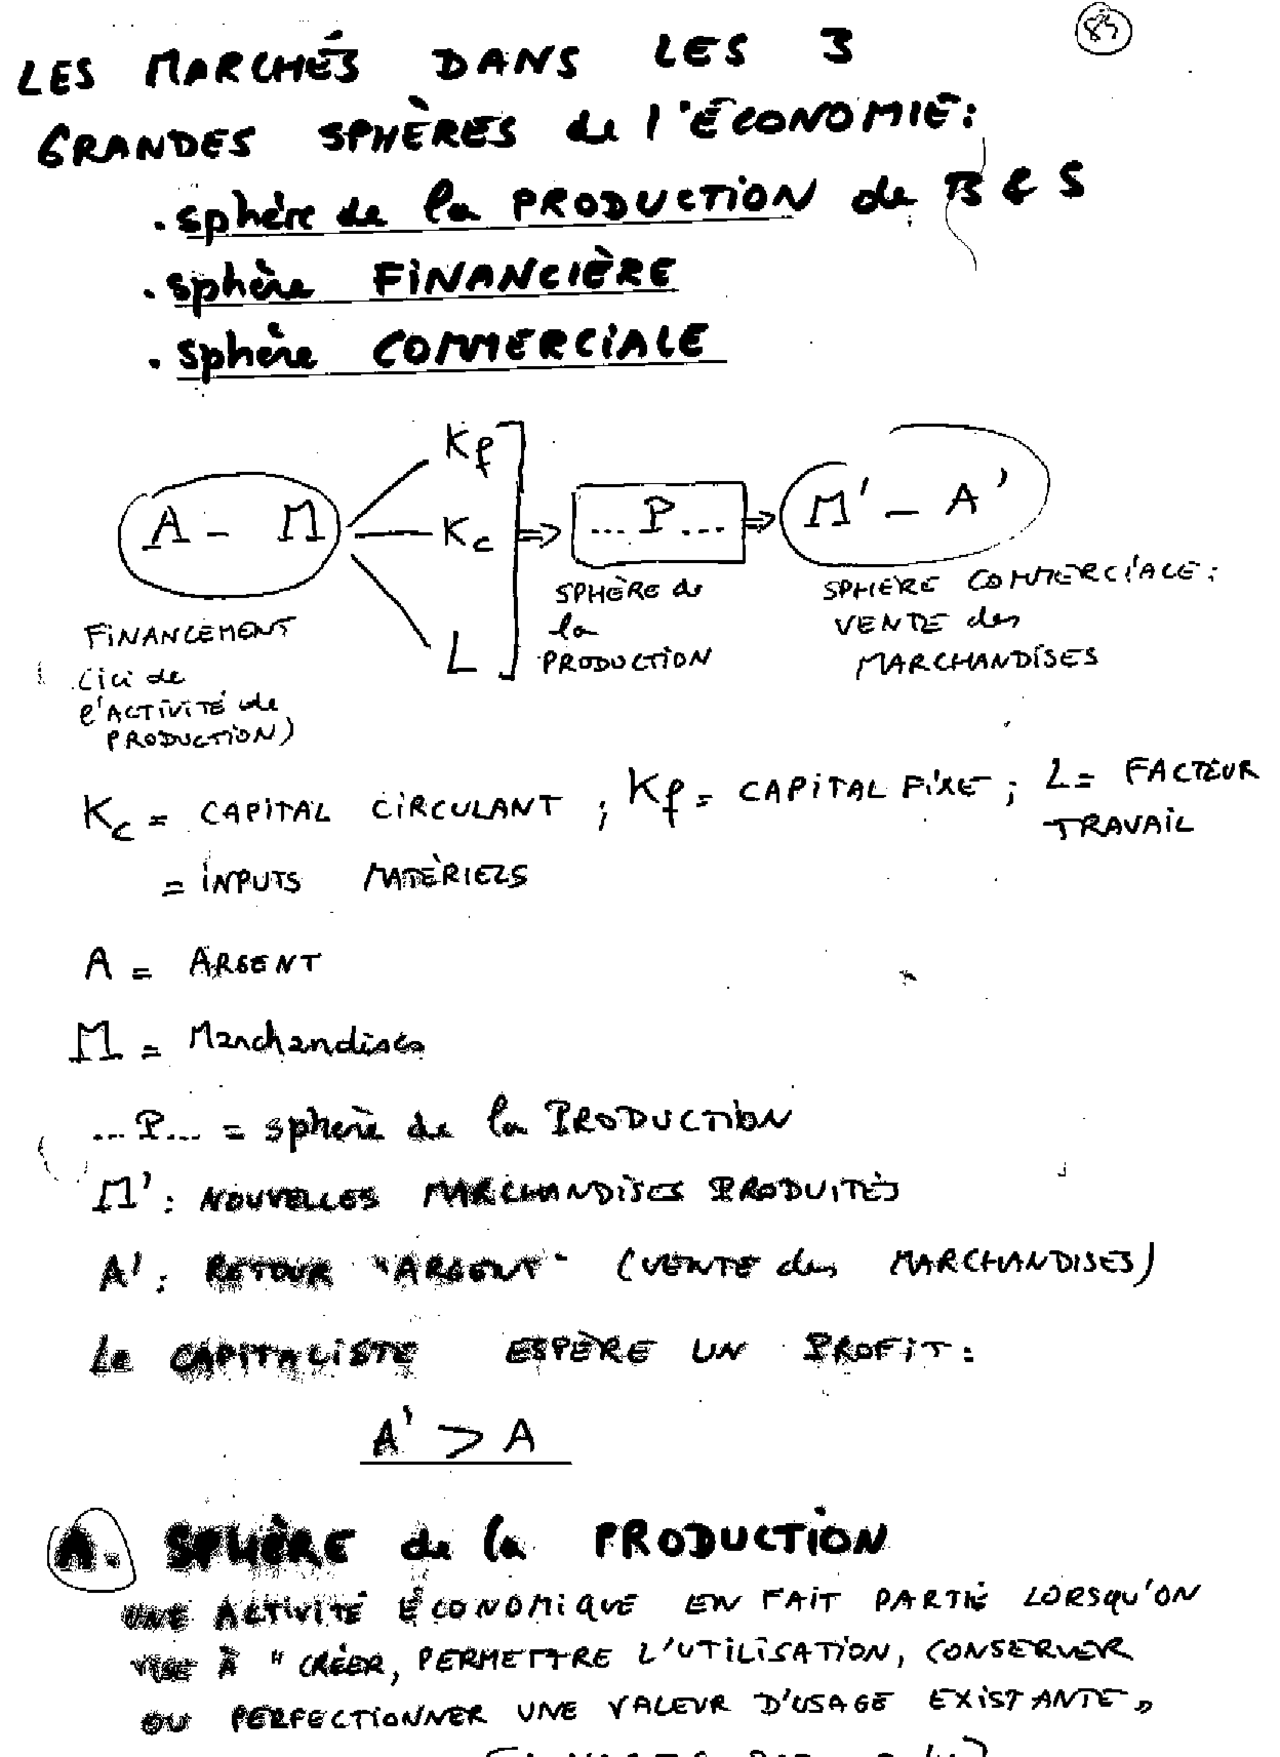 83
LES MARCHÉS DANS LES 3
GRANDES SPHÈRES de l'ÉCONOMIE:
. sphère de la PRODUCTION de B & S
. sphère FINANCIÈRE
. sphère COMMERCIALE
A - M
Kf
Kc
L
=> ... P ... => M' - A'
FINANCEMENT
(ici de
l'ACTIVITÉ de
PRODUCTION)
SPHÈRE de
la
PRODUCTION
SPHÈRE COMMERCIALE:
VENTE des
MARCHANDISES
Kc = CAPITAL CIRCULANT ; Kf = CAPITAL FIXE ; L = FACTEUR
TRAVAIL
= INPUTS MATÉRIELS
A = ARGENT
M = Marchandises
... P... = sphère de la PRODUCTION
M' : NOUVELLES MARCHANDISES PRODUITES
A' : RETOUR "ARGENT" (VENTE des MARCHANDISES)
Le CAPITALISTE ESPÈRE UN PROFIT:
A' > A
A. SPHÈRE de la PRODUCTION
UNE ACTIVITÉ ÉCONOMIQUE EN FAIT PARTIE LORSQU'ON
VISE À "CRÉER, PERMETTRE L'UTILISATION, CONSERVER
OU PERFECTIONNER UNE VALEUR D'USAGE EXISTANTE"